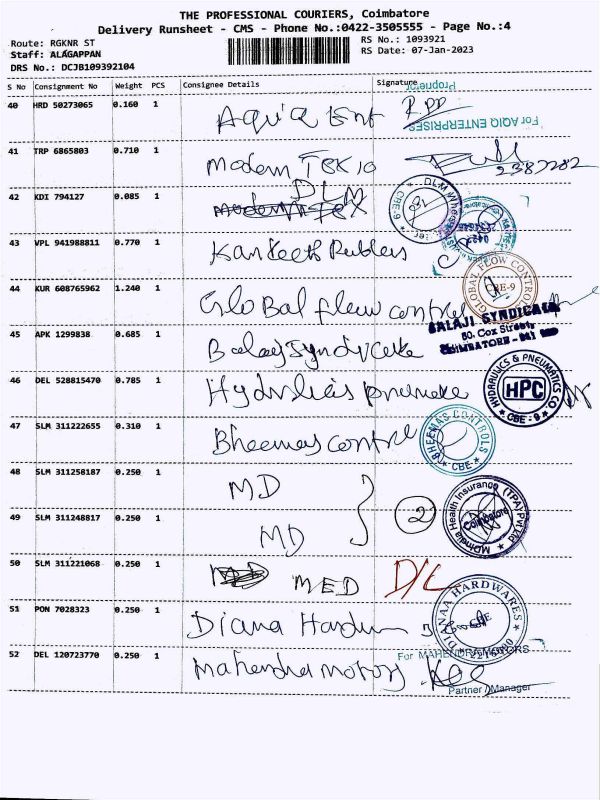 THE PROFESSIONAL COURIERS, Coimbatore
Delivery Runsheet - CMS - Phone No.:0422-3505555 - Page No.:4
Route: RGKNR ST
Staff: ALAGAPPAN
DRS No.: DCJB109392104
RS No.: 1093921
RS Date: 07-Jan-2023
S No Consignment No Weight PCS Consignee Details Signature
Proprietor
40 HRD 50273065 0.160 1 Aqiq Ent
For AQIQ ENTERPRISES
41 TRP 6865803 0.710 1 Modern TEK 10
2382282
42 KDI 794127 0.085 1 DLM
CBE-9
43 VPL 941988811 0.770 1
44 KUR 608765962 1.240 1 Global flow control
GLOBAL FLOW CONTROL CBE-9
45 APK 1299838 0.685 1 Balaji Syndicate
BALAJI SYNDICATE
50. Cox Street,
COIMBATORE - 641 009
46 DEL 528815470 0.785 1 Hydrulics pnumake
HYDRAULICS & PNEUMATICS CO HPC CBE - 9
47 SLM 311222655 0.310 1 Bheemas control
BHEEMAS CONTROLS CBE
48 SLM 311258187 0.250 1 MD
49 SLM 311248817 0.250 1 MD
2
MDIndia Health Insurance (TPA) Pvt Ltd Coimbatore
50 SLM 311221068 0.250 1 MED D/L
51 PON 7028323 0.250 1 Diana Hardw
DIANAA HARDWARES CBE
52 DEL 120723770 0.250 1 Mahendra motors
For MAHENDRA MOTORS
Partner / Manager